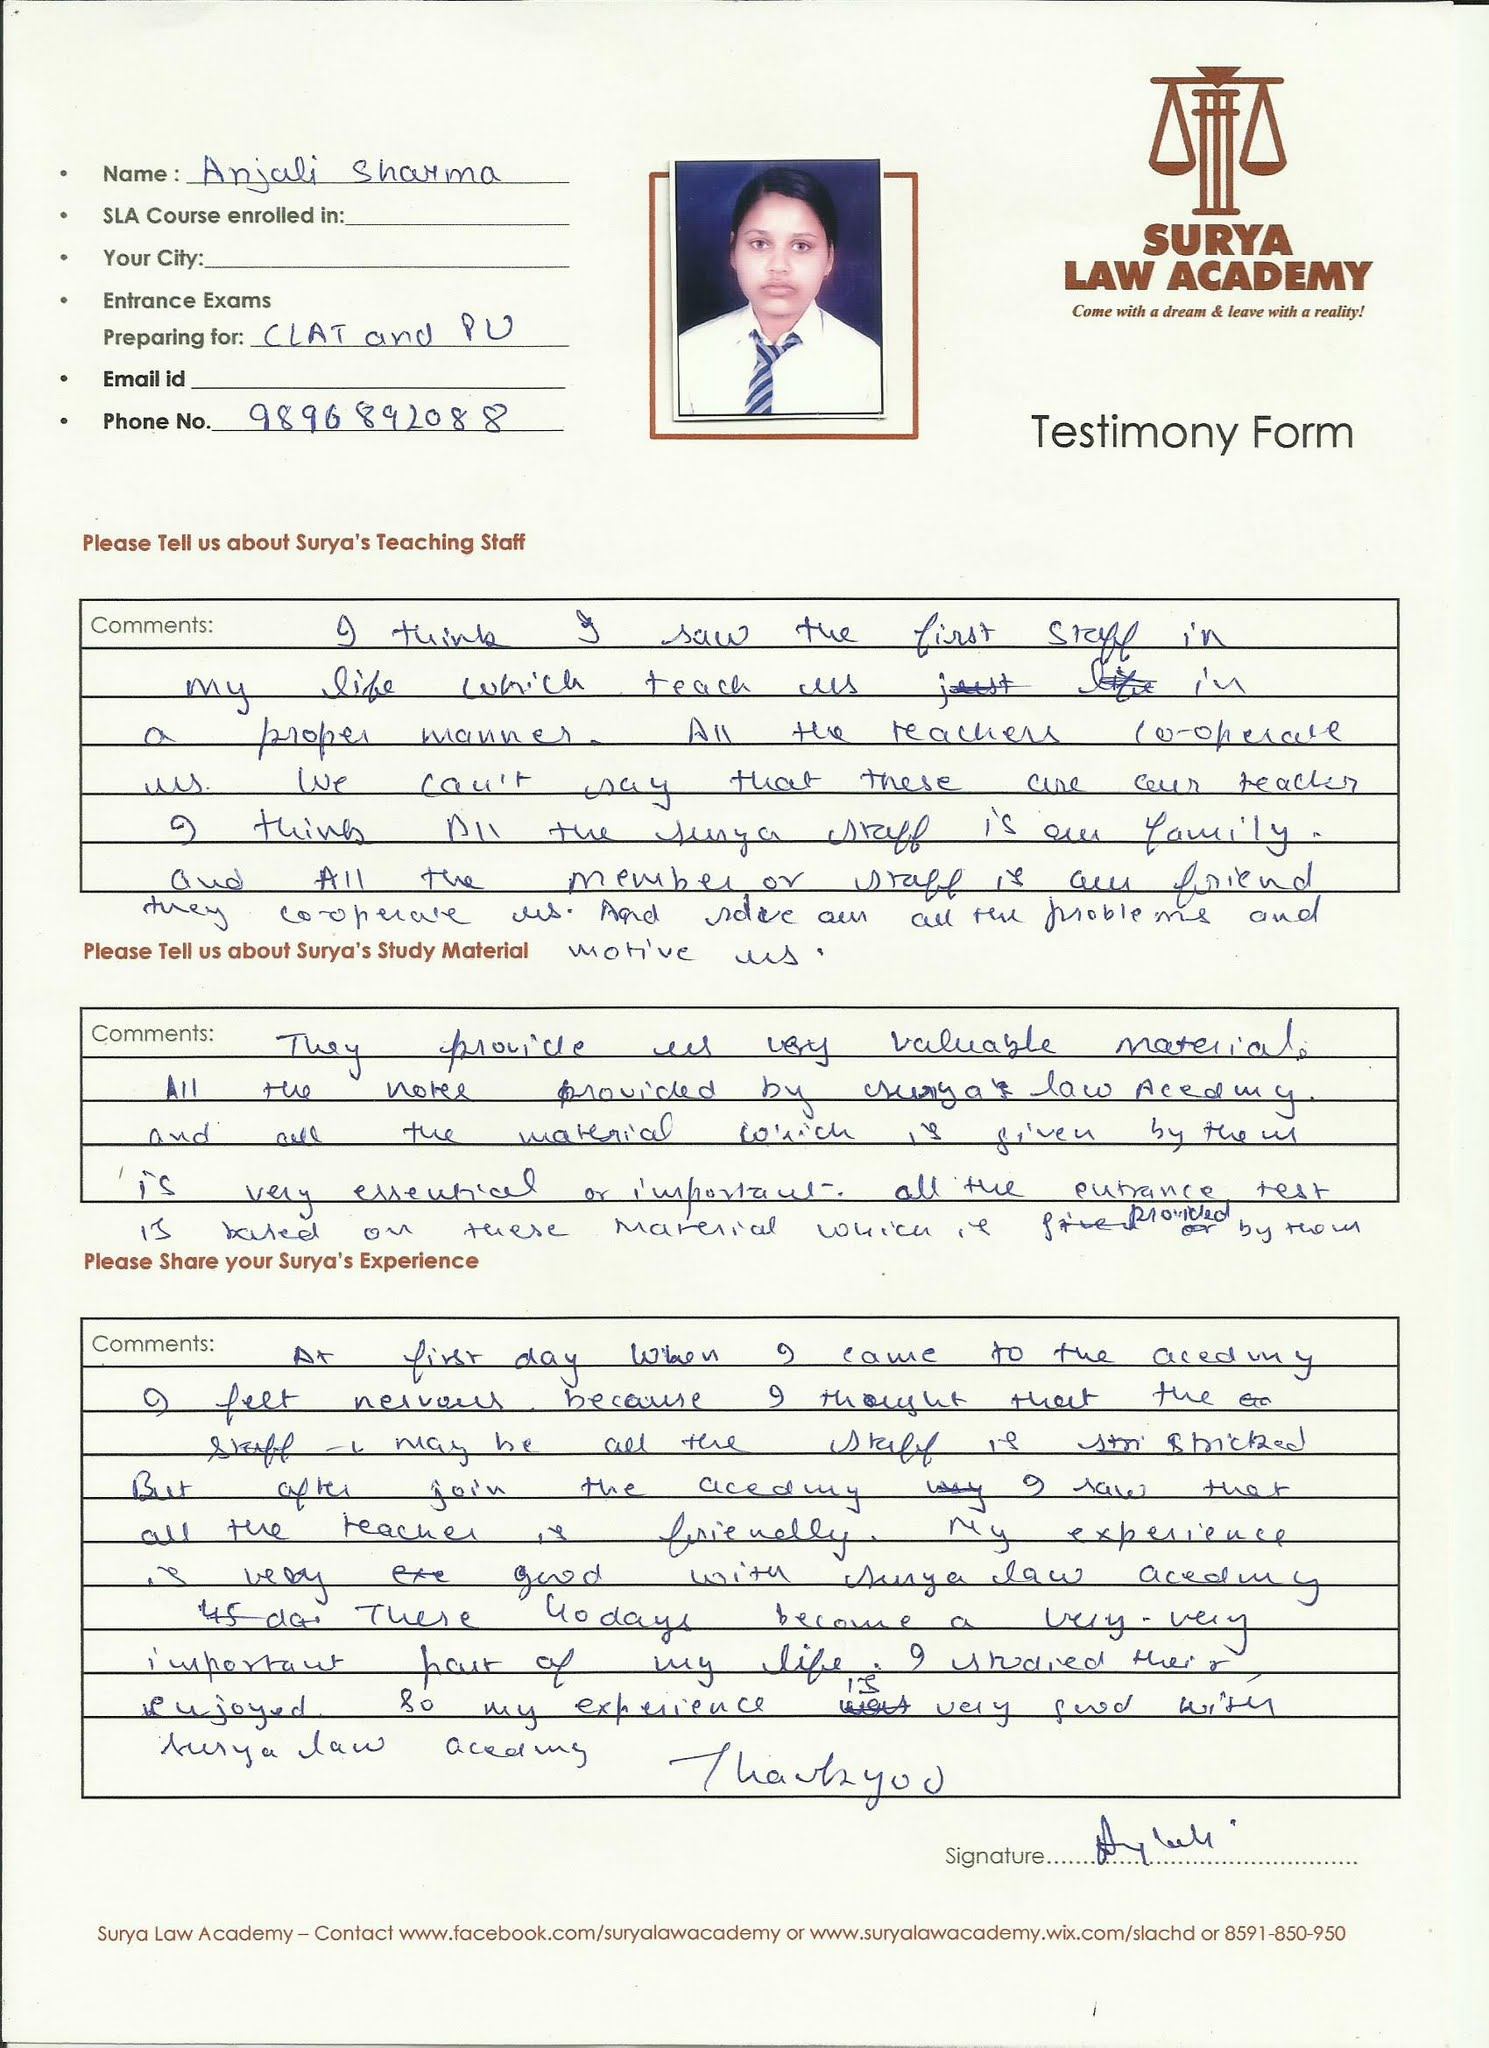 SURYA
LAW ACADEMY
Come with a dream & leave with a reality!
Testimony Form
• Name : Anjali Sharma
• SLA Course enrolled in:
• Your City:
• Entrance Exams
Preparing for: CLAT and PU
• Email id
• Phone No. 9896892088
Please Tell us about Surya's Teaching Staff
Comments: I think I saw the first staff in
my life which teach us just like in
a proper manner. All the teachers co-operate
us. We can't say that these are our teacher
I think All the surya staff is our family.
and All the member or staff is our friend
they co-operate us. And solve our all the problems and
motive us.
Please Tell us about Surya's Study Material
Comments: They provide us very valuable material.
All the notes provided by surya's law Acedmy.
and all the material which is given by them
is very essential or important. all the entrance test
is based on these material which is given provided or by them
Please Share your Surya's Experience
Comments: At first day when I came to the acedmy
I felt nervous. because I thought that the
staff - may be all the staff is stri stricked
But after join the acedmy my I saw that
all the teacher is friendly. My experience
is very exe good with surya law acedmy
45 da. These 40 days become a very-very
important part of my life. I studied their,
enjoyed. So my experience was is very good with
surya law acedmy
Thankyou
Signature........ Anjali
Surya Law Academy – Contact www.facebook.com/suryalawacademy or www.suryalawacademy.wix.com/slachd or 8591-850-950